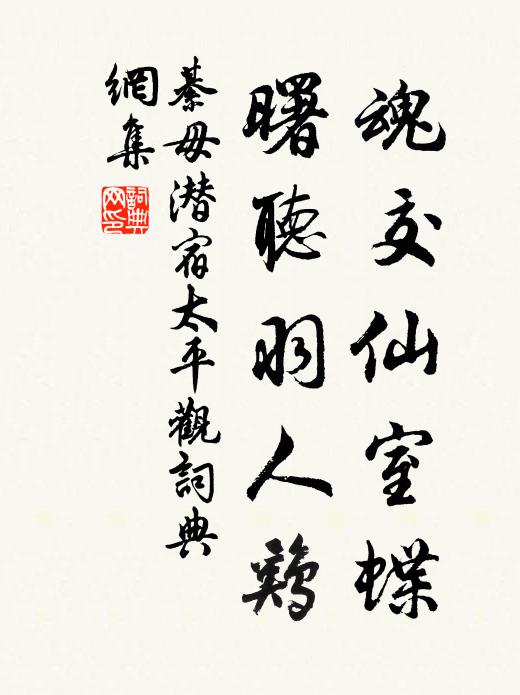 魂交仙室蝶
曙聽羽人鷄
綦毋潜宿太平觀詞典
網集
詞典网印